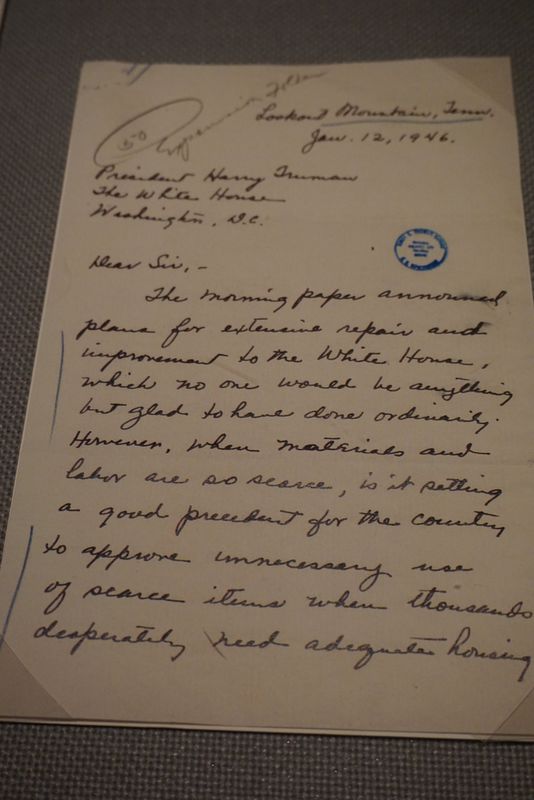 50
Lookout Mountain, Tenn.
Jan. 12, 1946.
President Harry Truman
The White House
Washington, D.C.
Dear Sir,-
The morning paper announced
plans for extensive repair and
improvement to the White House,
which no one would be anything
but glad to have done ordinarily.
However, when materials and
labor are so scarce, is it setting
a good precedent for the country
to approve unnecessary use
of scarce items when thousands
desperately need adequate housing